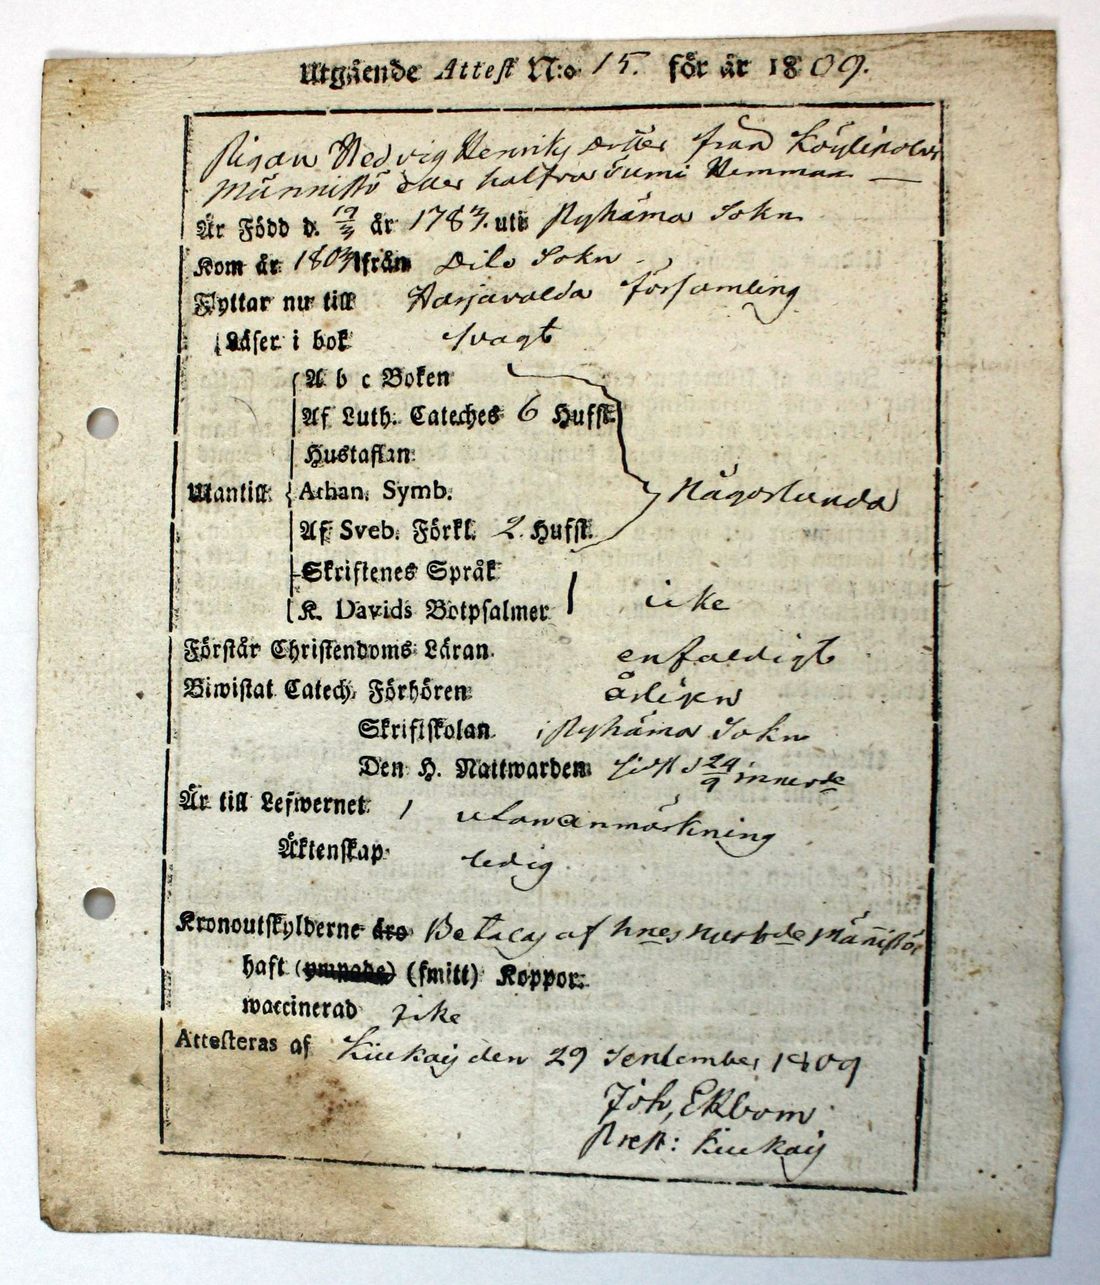 Utgående Attest N:o 15. för år 1809.
Pigan Hedvig Henriks dotter från Köyliskolvi
Männistö eller halfva Sumi Hemman
Är Född d. 19/3 år 1783. uti Nyhämo Sokn
Kom år 1803 ifrån Dito Sokn
Flyttar nu till Harjavalda församling
Läser i bok svagt
A b c Boken
Af Luth. Cateches 6 Hufst.
Hustaflan
Utantill Athan. Symb. Någorlunda
Af Sveb. Förkl. 2 Hufst.
Skriftenes Språk
K. Davids Botpsalmer icke
Förstår Christendoms Läran enfaldigt
Biwistat Catech. Förhören årligen
Skriftskolan i Nyhämo Sokn
Den H. Nattwarden sist d 24/9 innevde
Är till Lefwernet utan anmärkning
Äktenskap ledig
Kronoutskylderne äro Betalas af Männistö
haft (ympade) (smitt) Koppor
waccinerad icke
Attesteras af Kiukais den 29 September 1809
Joh, Ekbom
Prest: Kiukais